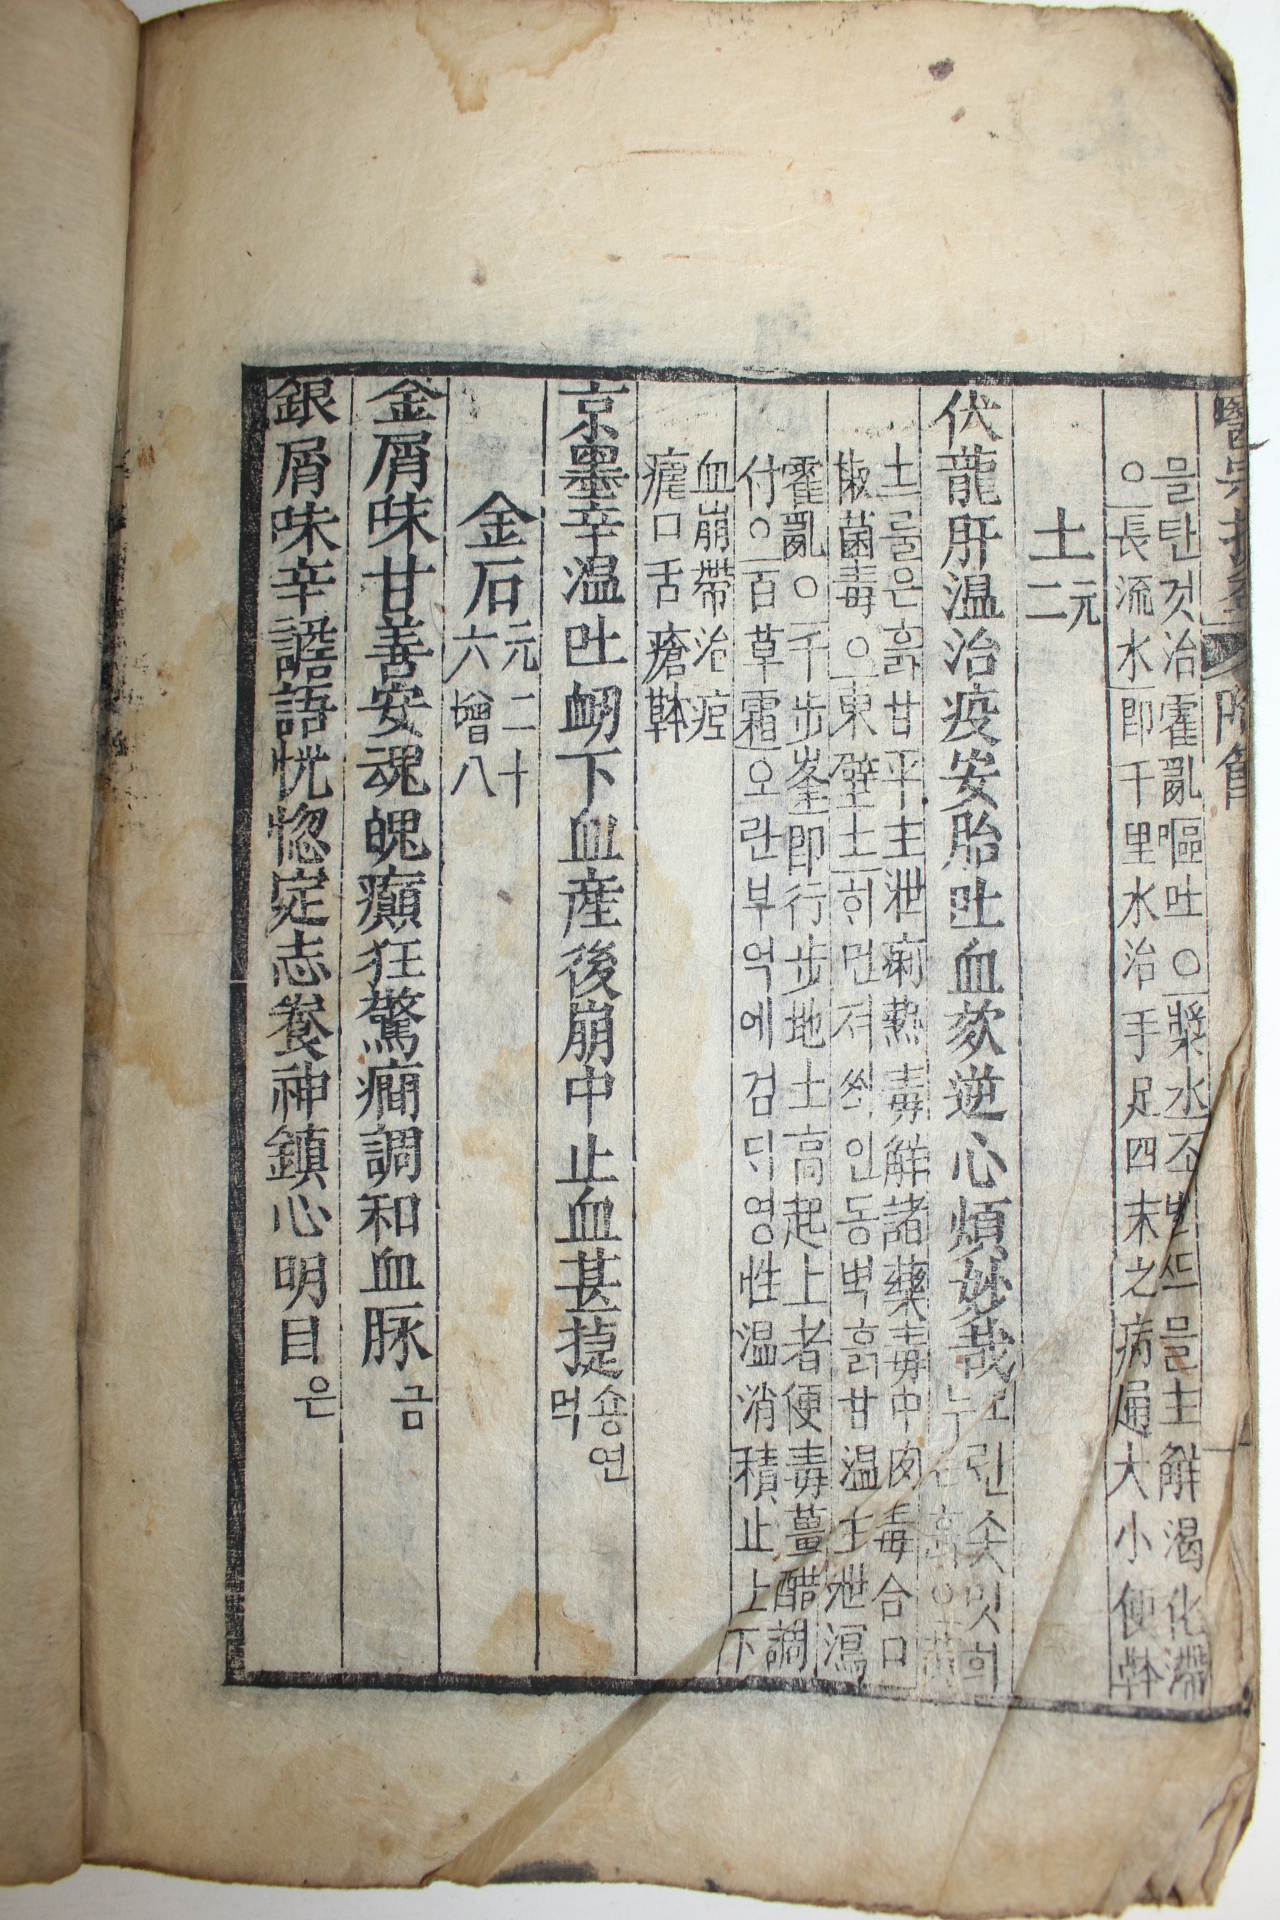 醫宗損益 附餘
을탄것治霍亂嘔吐○漿水조밥쓰믈主解渴化滯
○長流水卽千里水治手足四末之病通大小便䪺
土元二
伏龍肝温治疫安胎吐血欬逆心煩妙哉오린솟밋희누른흙○黃
土루은흙甘平主泄痢熱毒解諸藥毒中肉毒合口
椒菌毒○東壁土히먼져쐰인동벽흙甘温主泄瀉
霍亂○千步峯卽行步地土高起上者便毒薑醋調
付○百草霜오란부억에검듸영性温消積止上下
血崩帶治疸
瘧口舌瘡䪺
京墨辛温吐衂下血産後崩中止血甚㨗숑연먹
金石元二十六增八
金屑味甘善安魂魄癲狂驚癎調和血脉금
銀屑味辛譫語恍惚定志養神鎮心明目은